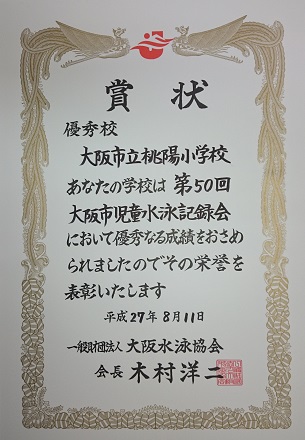 賞状
優秀校
大阪市立桃陽小学校
あなたの学校は第50回
大阪市児童水泳記録会
において優秀なる成績をおさめ
られましたのでその栄誉を
表彰いたします
平成27年8月11日
一般財団法人 大阪水泳協会
会長 木村洋二